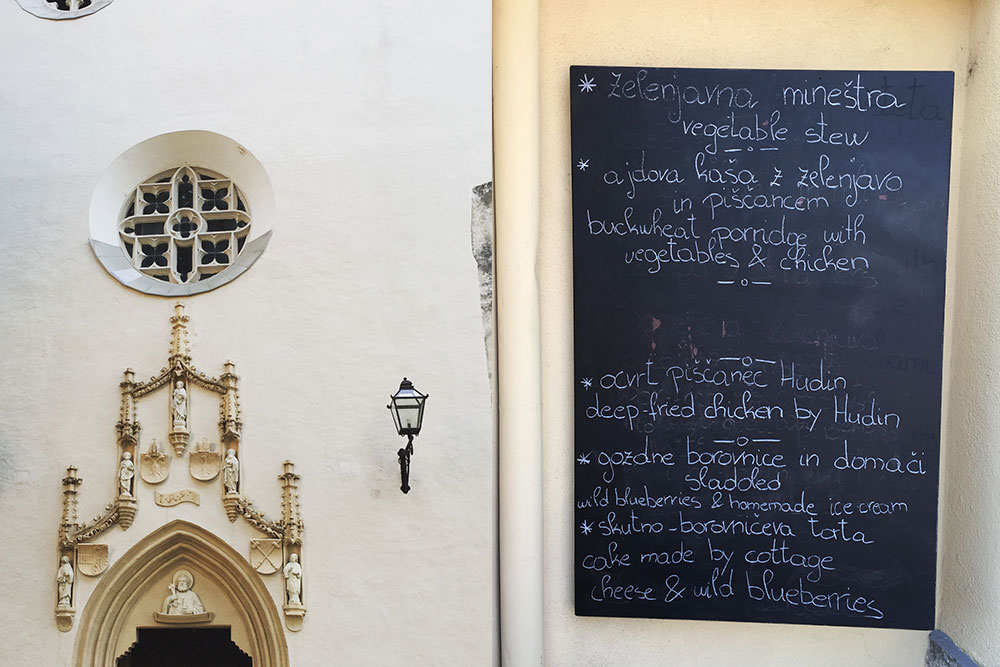 * zelenjavna mineštra
vegetable stew
* ajdova kaša z zelenjavo
in piščancem
buckwheat porridge with
vegetables & chicken
* ocvrt piščanec Hudin
deep-fried chicken by Hudin
* gozdne borovnice in domači
sladoled
wild blueberries & homemade ice cream
* skutno-borovničeva torta
cake made by cottage
cheese & wild blueberries